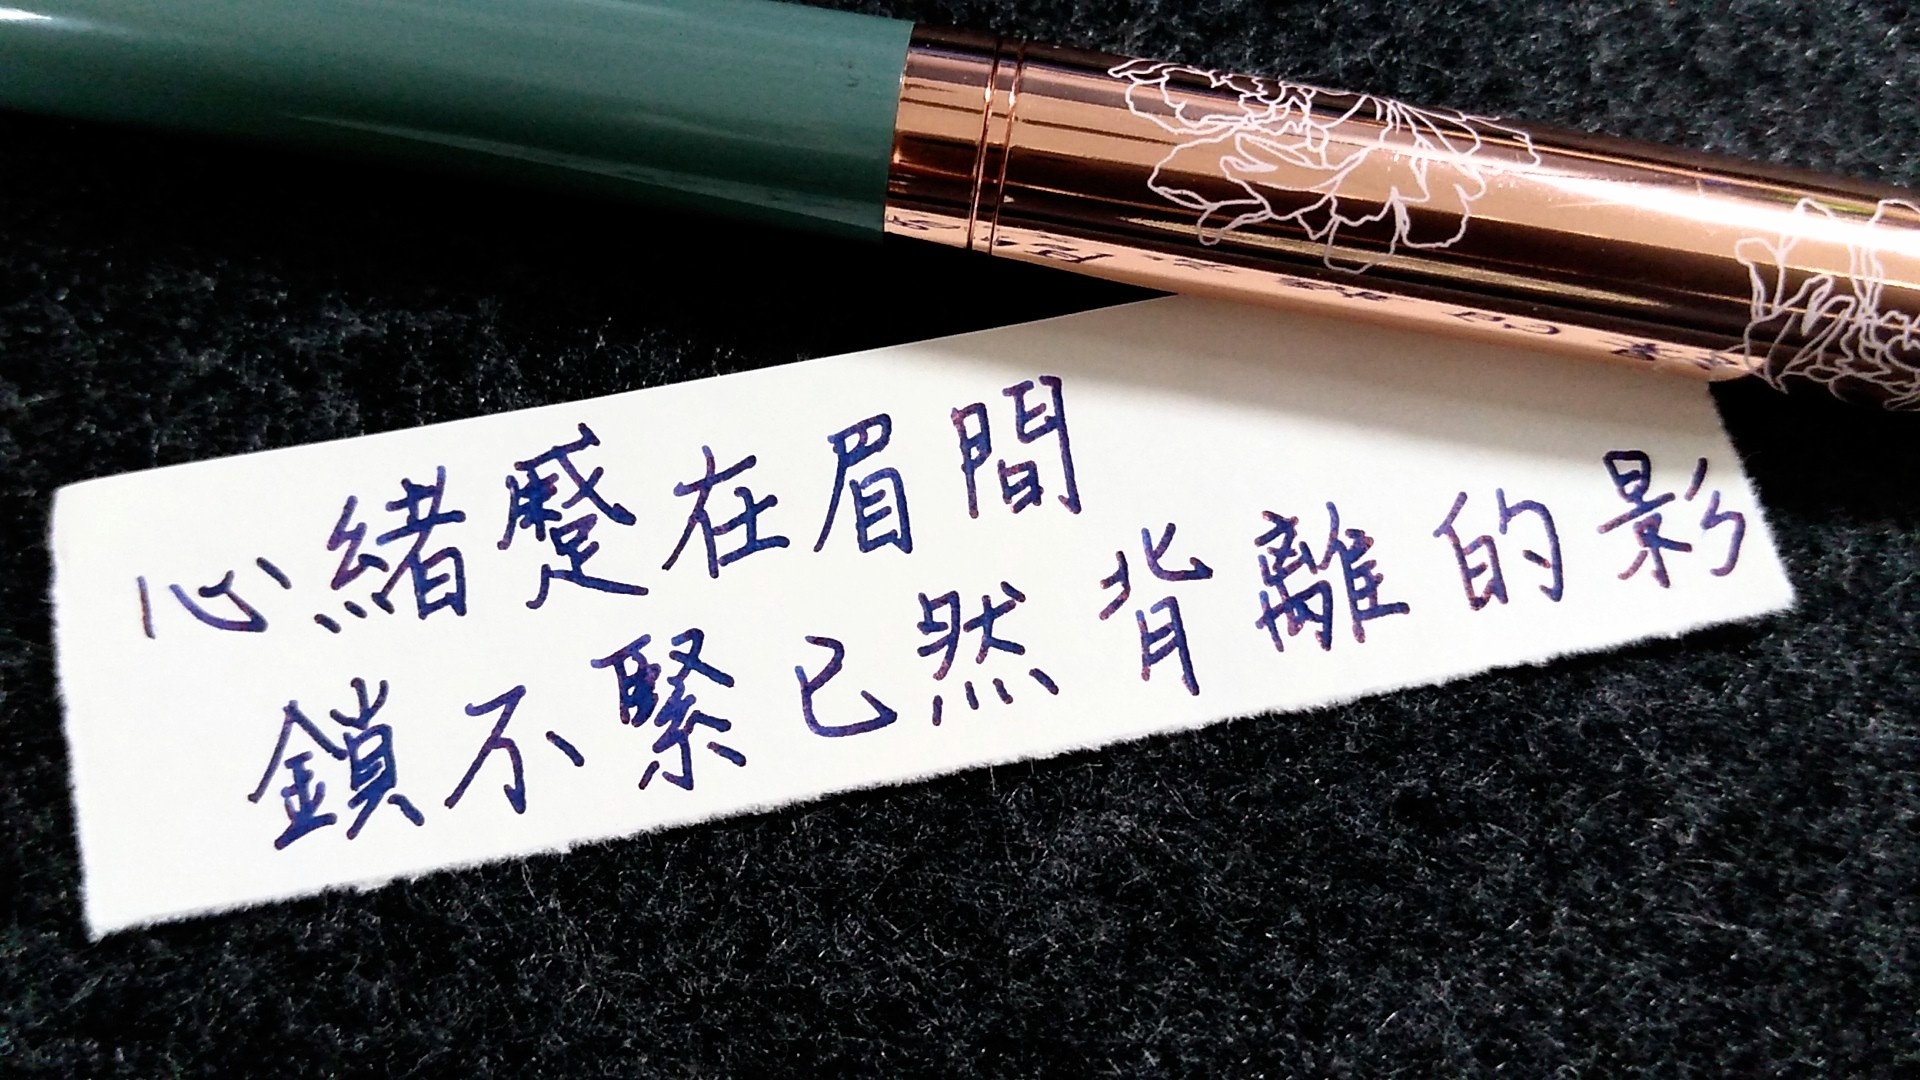 心緒蹙在眉間
鎖不緊已然背離的影